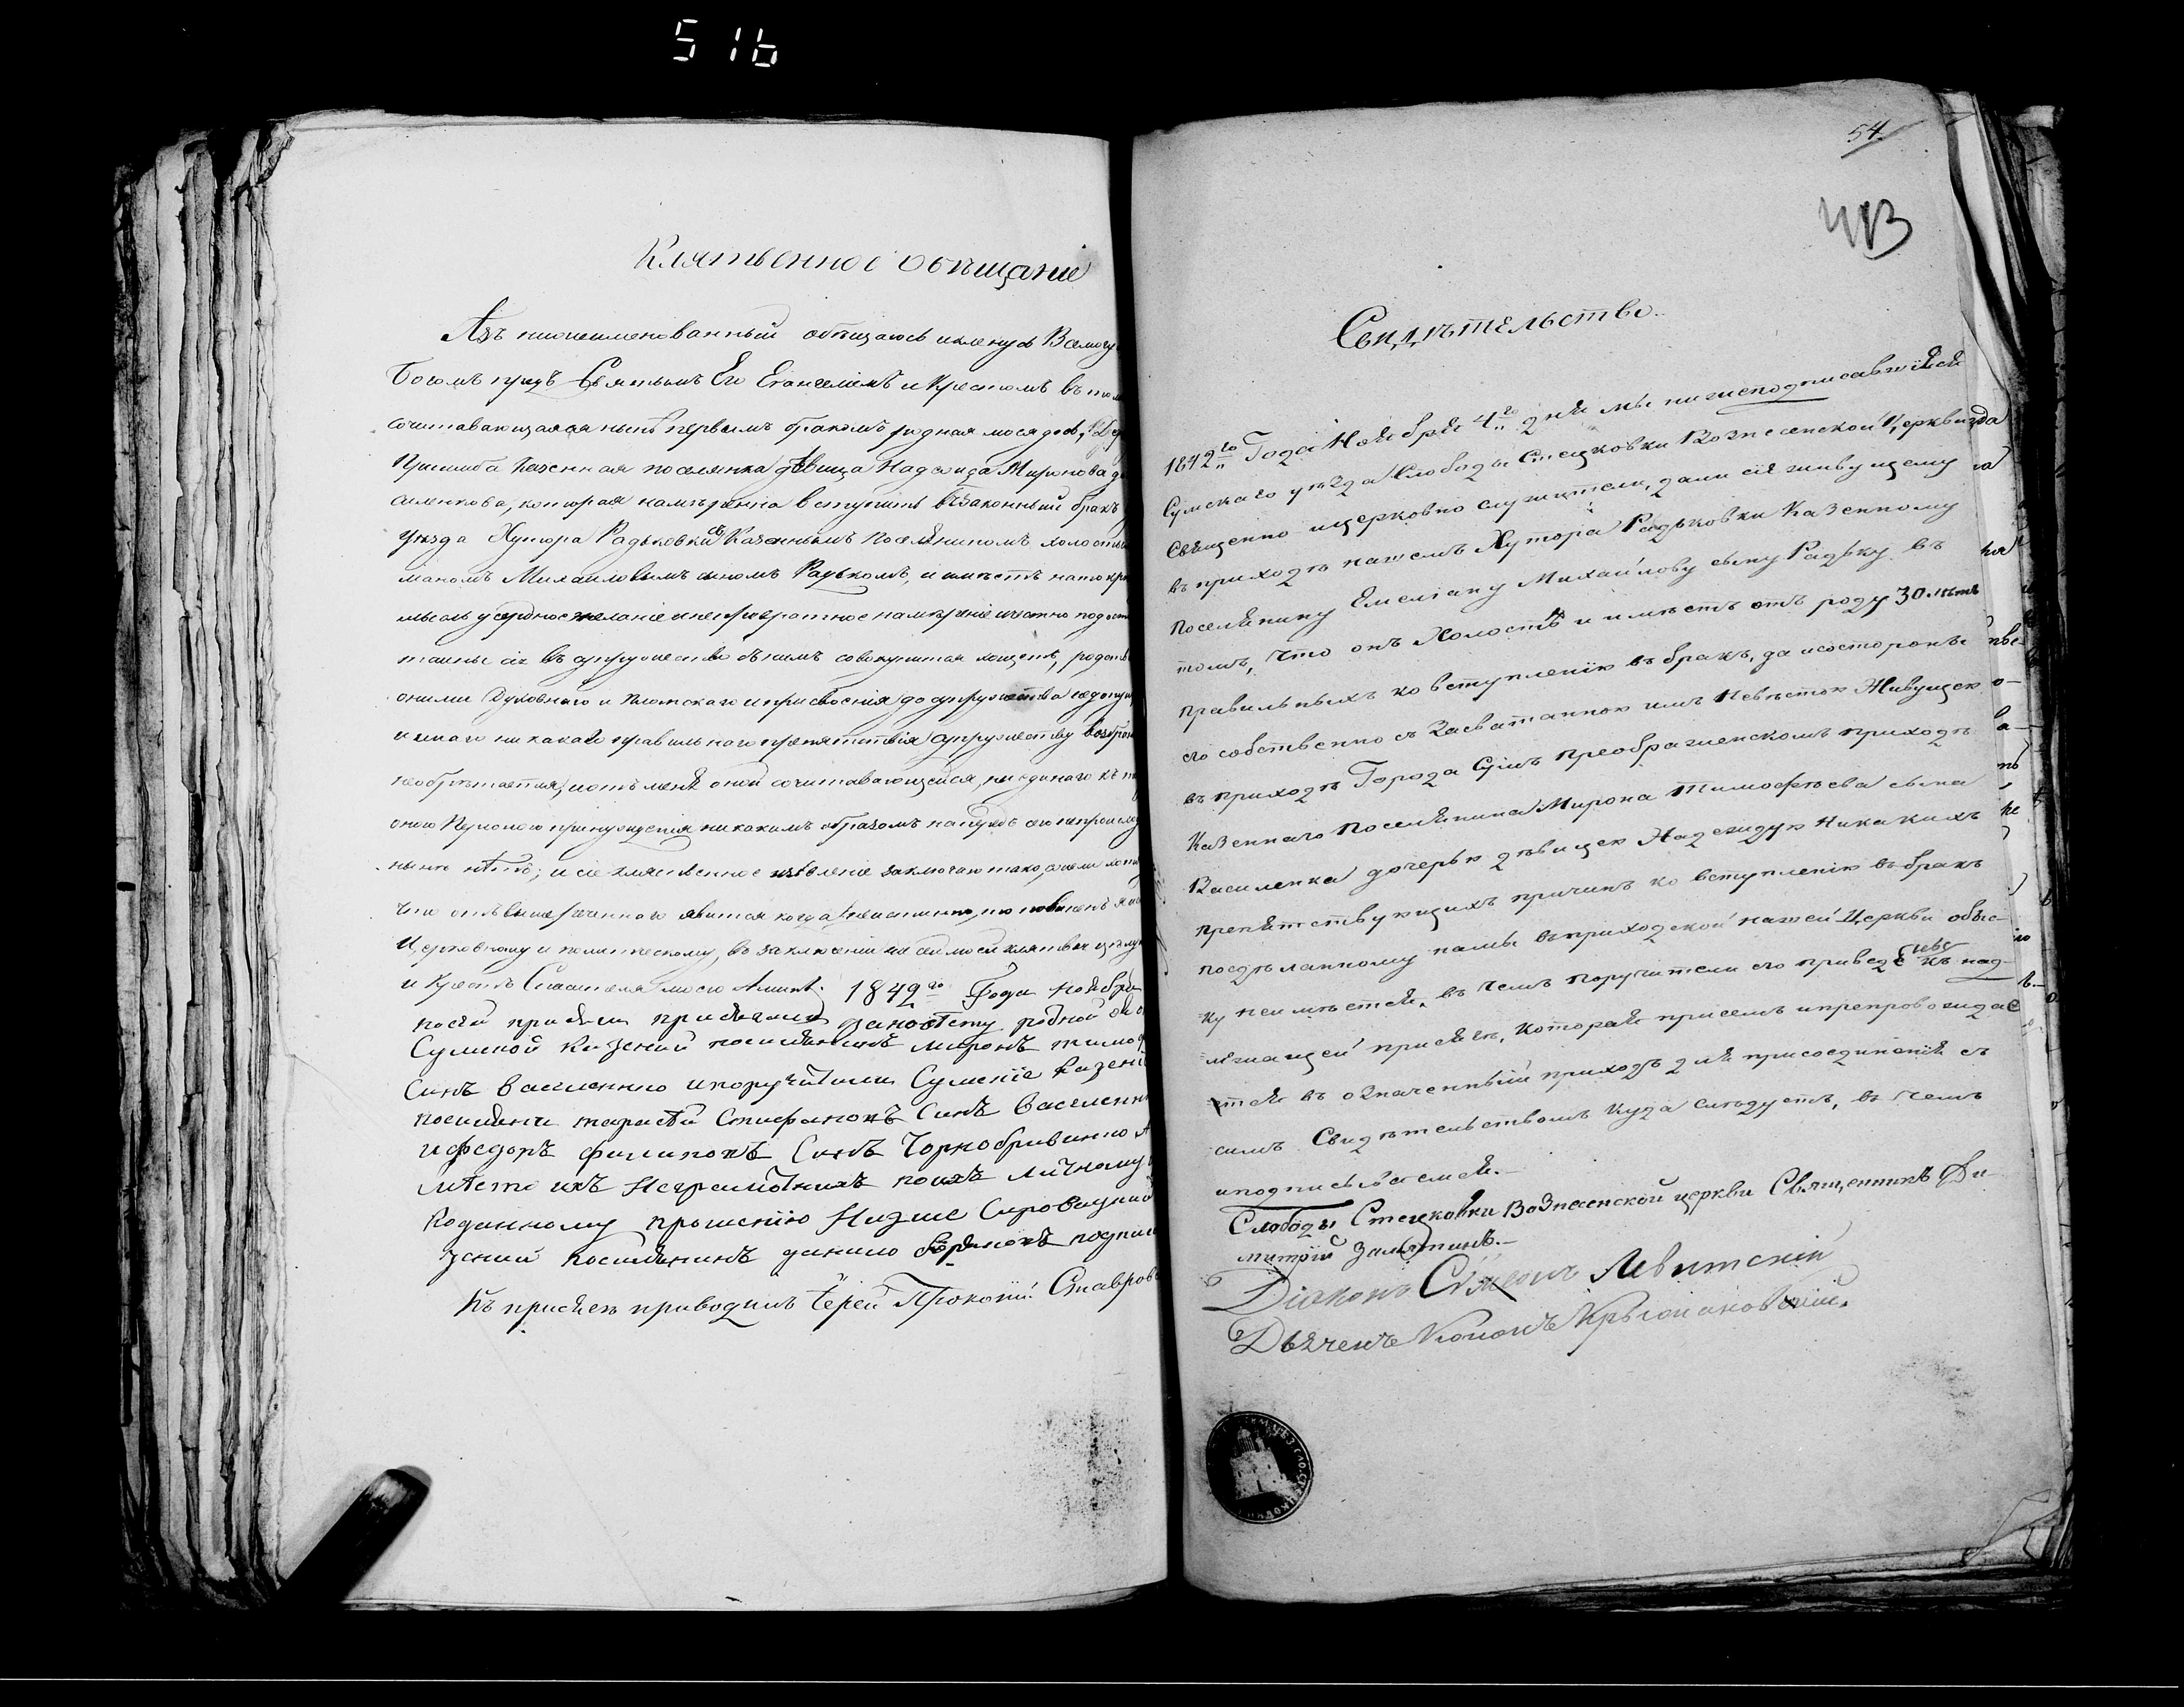 516
Клятвенное обѣщаніе
Азъ нижеименованный обѣщаюсь и кленусь Всемогу
Богомъ предъ Святымъ Его Евангеліемъ и Крестомъ въ том
сочитавающаяся нынѣ первымъ бракомъ родная моя дочь
казенная поселянка дѣвица Надежда Миронова до
силенкова, которая намѣренна вступить въ законный бракъ
уѣзда Хутора Радьковки съ Казеннымъ поселяниномъ холостым
маномъ Михаиловымъ сыномъ Радькомъ, и имѣетъ на то кр
мысль усердное желаніе и непревратное намѣреніе и честно по дост
тайны сея въ супружество съ нимъ совокупится хощетъ, родств
оними Духовнаго и Плотскаго и присвоенія до супружества недопу
и инаго никакаго правильнаго препятствія супружеству возбран
необрѣтается, и отъ мене оной сочитавающейся, ни единаго къ
оного Перваго принужденія никакимъ образомъ напредь сего непроизо
нынѣ нѣтъ; и сіе клятвенное изъявленіе заключаю тако, ежели хотя
что отъ вышереченного явится когда неистинно, то повиненъ я
Церковному и политическому, въ заключеніи же сей моей клятвы цѣлую
и Крестъ Спасителя моего Аминь. 1842го Года ноября
посей присяги присягали
Сумской Казений поселянинъ миронъ тимоф
Синъ василенко и поручители Сумскіе казени
поселяни тарасѣй Стифановъ Синъ василенк
и федоръ филиповъ Синъ Чорнобривенко а
мѣсто ихъ Неграмотнихъ поихъ личному
Поданному прошенію Низше Сироватки
зений поселянинъ данило подпи
Къ присягѣ приводилъ Іерей Прокопій Ставров
54.
Свидѣтельство.
1842го Года Ноября 4го дня мы нижеподписавшіяся
Сумскаго уѣзда Слободы Стецковки Вознесенской Церкви
Священно ицерковно служители, дали сіе живущему
въ приходѣ нашемъ Хутора Радьковки Казенному
Поселянину Емеліану Михайлову сыну Радьку въ
томъ, что онъ Холостъ и имѣетъ отъ роду 30 лѣтъ
правильныхъ ко вступленію въ бракъ, да исо стороны
его собственно съ Засватанною имъ Невѣстою Живущею
въ приходѣ Города Сумъ преображенскомъ приходѣ
Казеннаго поселянина Мирона Тимофѣева сына
Василенка дочерью дѣвицею Надеждою Никакихъ
препятствующихъ причинъ ко вступленію въ бракъ
поздѣланному нами въприходской нашей Церкви обыс-
ку неимѣется, въ чемъ поручители его приведены къ над-
лѣжащей присягѣ, которая присемъ и препровождае
тся въ означенный приходъ для присоединенія съ
симъ Свидѣтельствомъ куда слѣдуетъ, въ чемъ
и подписуемся.
Слободы Стецковки Вознесенской церкви Священникъ Ди
митрій Замятинъ.
Діаконъ Сѵмеонъ Левитскій
Дьячекъ